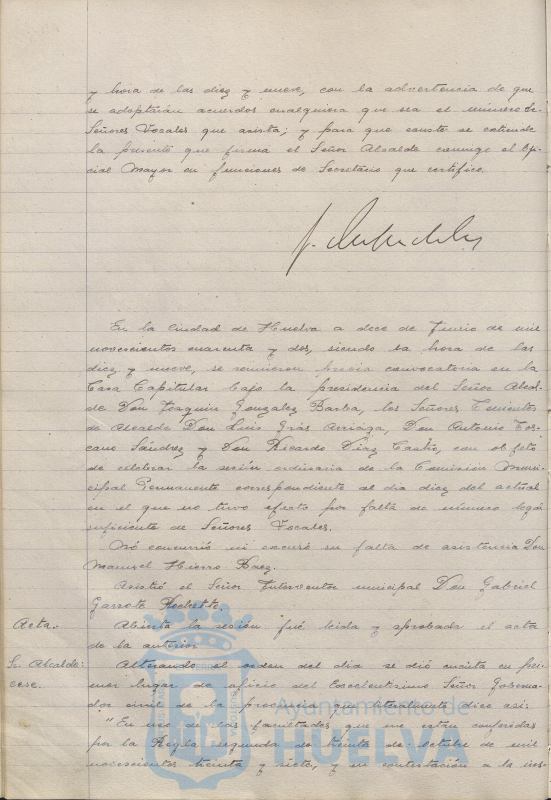 y hora de las diez y nueve, con la advertencia de que
se adoptarán acuerdos cualquiera que sea el número de
Señores Vocales que asista; y para que conste se extiende
la presente que firma el Señor Alcalde conmigo el Ofi-
cial Mayor en funciones de Secretario que certifico.
En la Ciudad de Huelva a doce de Junio de mil
novecientos cuarenta y dos, siendo la hora de las
diez y nueve, se reunieron previa convocatoria en la
Casa Capitular bajo la presidencia del Señor Alcal-
de Don Joaquin Gonzalez Barba, los Señores Tenientes
de Alcalde Don Luis Grás Arriaga, Don Antonio Tos-
cano Sández y Don Ricardo Díaz Castro, con objeto
de celebrar la sesión ordinaria de la Comisión Muni-
cipal Permanente correspondiente al día diez del actual
en el que no tuvo efecto por falta de número legal
suficiente de Señores Vocales.
Nó concurrió ni excusó su falta de asistencia Don
Manuel Hierro Baez.
Asistió el Señor Interventor municipal Don Gabriel
Garrote
Acta.- Abierta la sesión fué leida y aprobada el acta
de la anterior
Sr. Alcalde: Alterando el orden del día se dió cuenta en pri-
cese. mer lugar de oficio del Excelentísimo Señor Goberna-
dor civil de la provincia que literalmente dice así:
"En uso de las facultades que me están conferidas
por la Regla segunda de treinta de octubre de mil
novecientos treinta y siete, y en contestación a la ins-
Ayuntamiento de
HUELVA